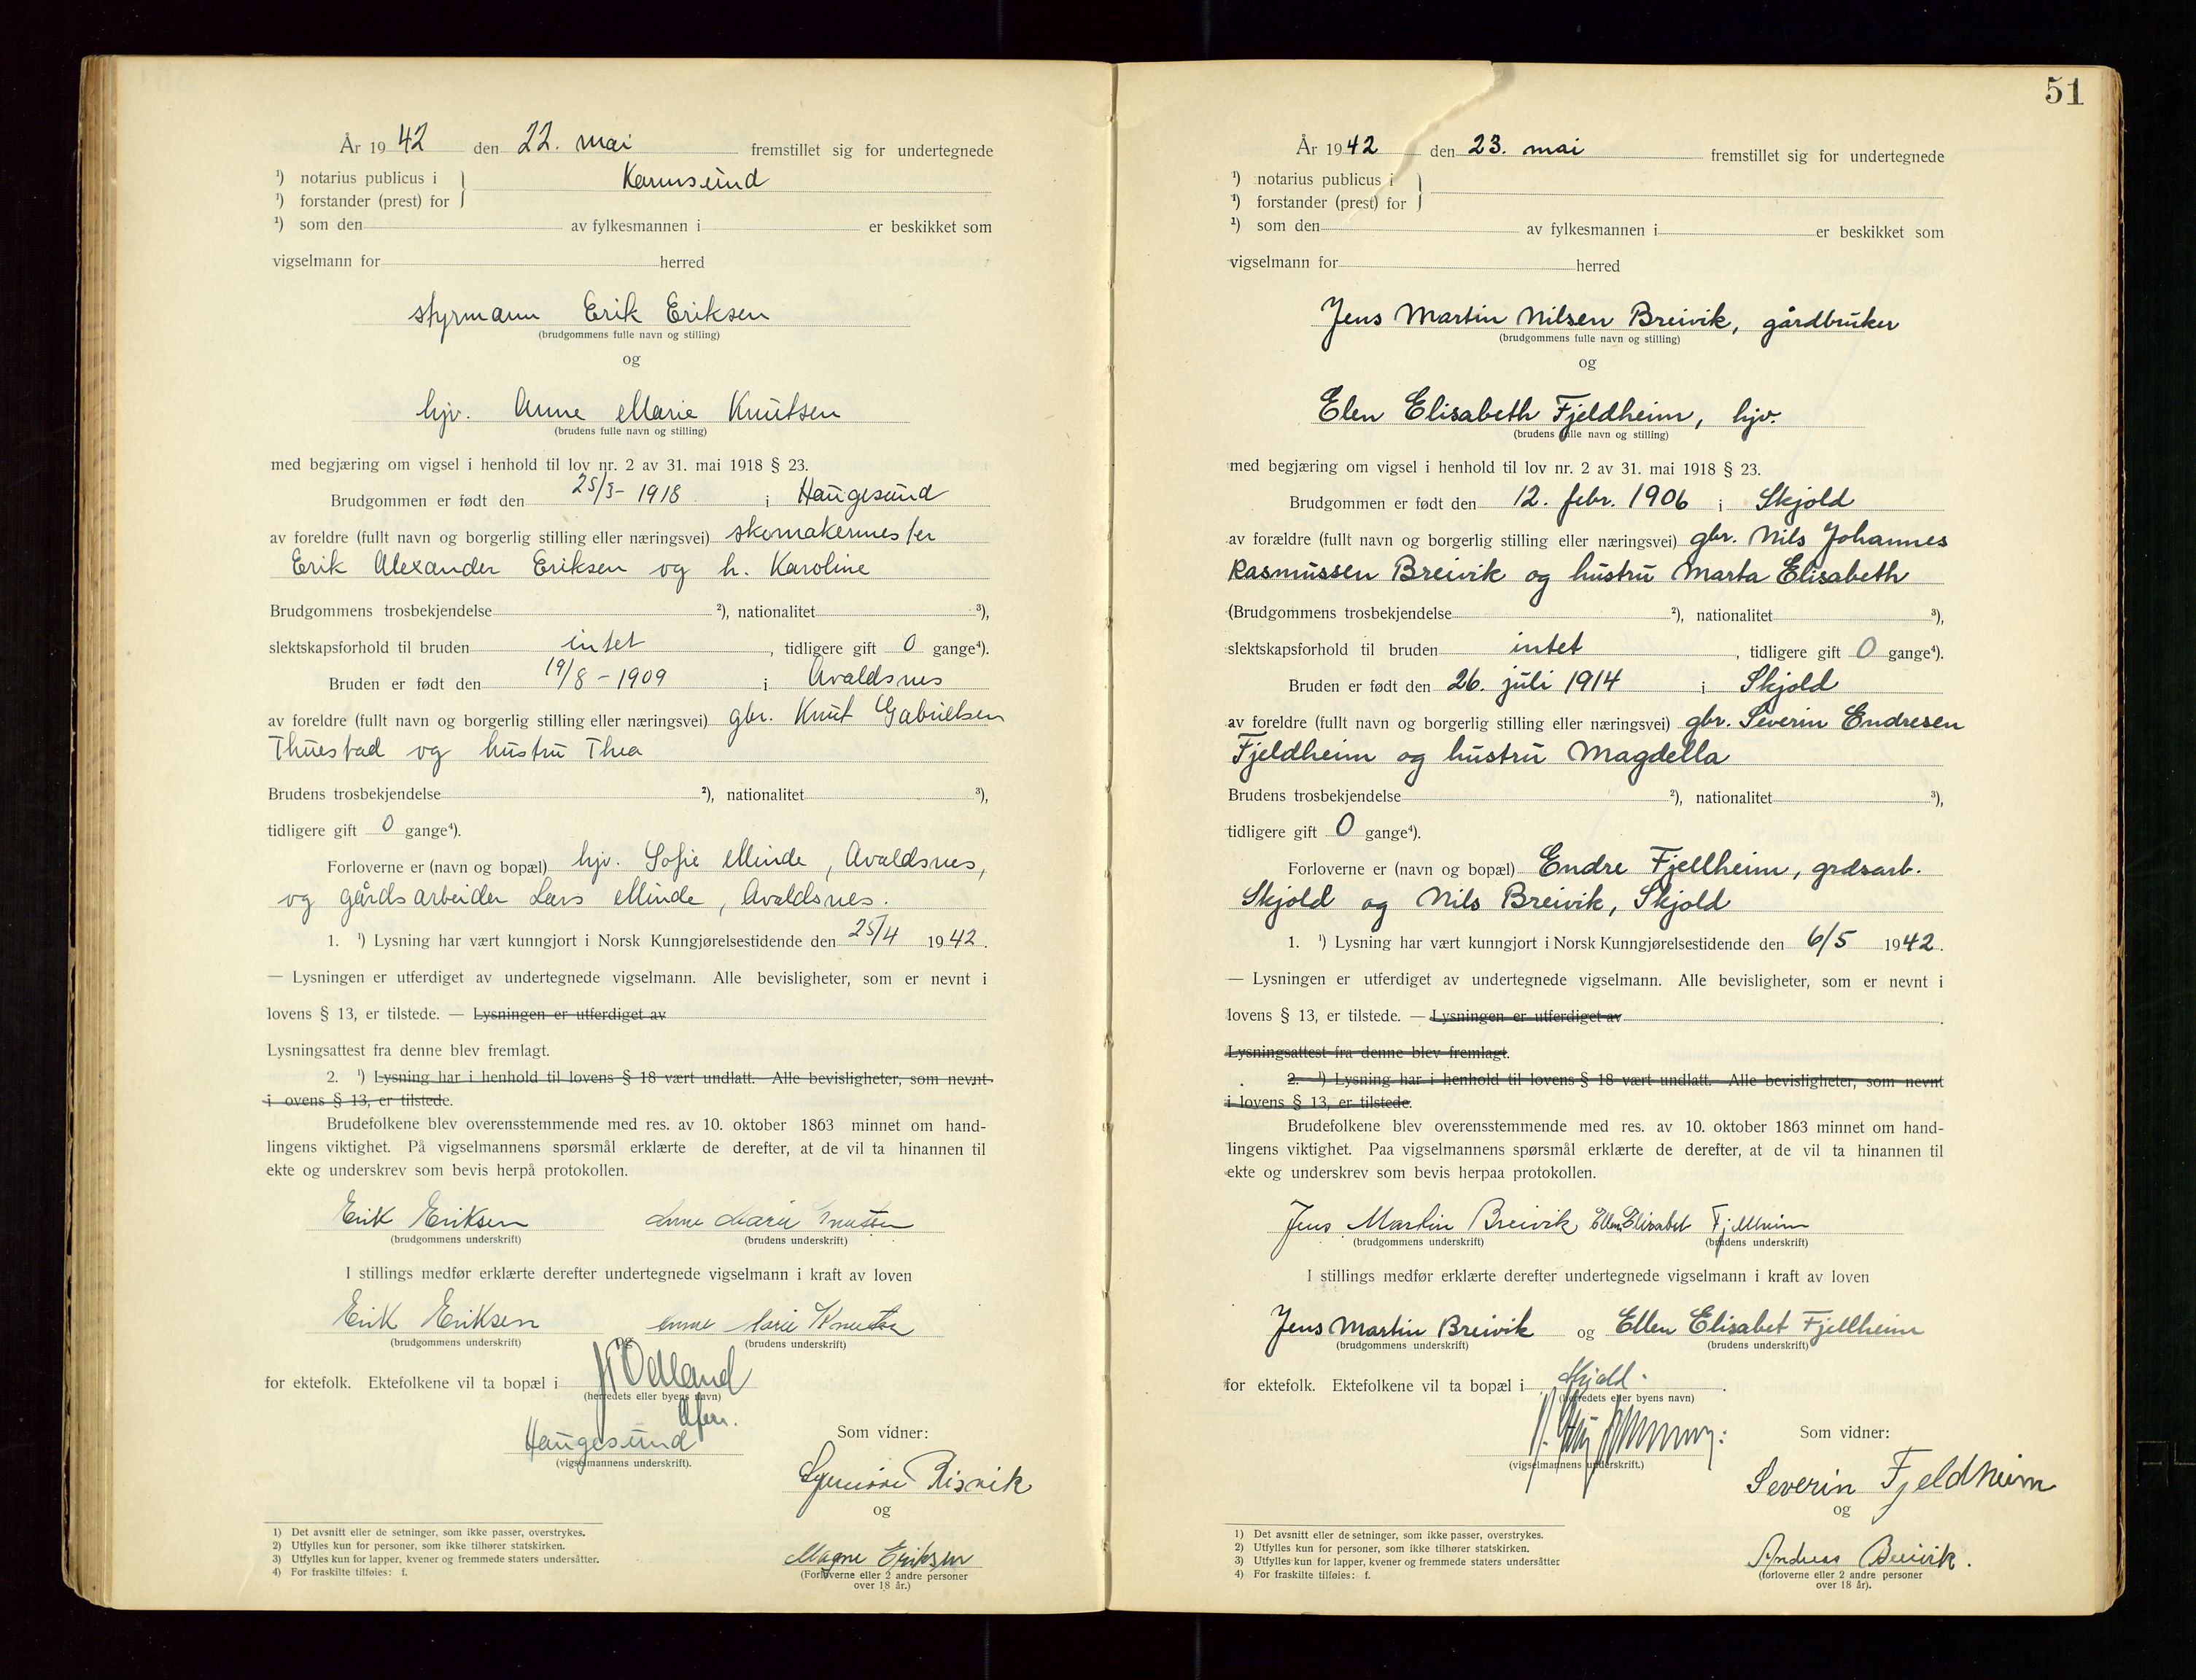 År 1942 den 22. mai fremstillet sig for undertegnede
¹) notarius publicus i } Karmsund
¹) forstander (prest) for
¹) som den av fylkesmannen i er beskikket som
vigselmann for herred
styrmann Erik Eriksen
(brudgommens fulle navn og stilling)
og
hjv. Anne Marie Knutsen
(brudens fulle navn og stilling)
med begjæring om vigsel i henhold til lov nr. 2 av 31. mai 1918 § 23.
Brudgommen er født den 25/3-1918 i Haugesund
av foreldre (fullt navn og borgerlig stilling eller næringsvei) skomakermester
Erik Alexander Eriksen og h. Karoline
Brudgommens trosbekjendelse ²), nationalitet ³),
slektskapsforhold til bruden intet, tidligere gift 0 gange⁴).
Bruden er født den 19/8-1909 i Avaldsnes
av foreldre (fullt navn og borgerlig stilling eller næringsvei) gbr. Knut Gabrielsen
Thuestad og hustru Thea
Brudens trosbekjendelse ²), nationalitet ³),
tidligere gift 0 gange⁴).
Forloverne er (navn og bopæl) hjv. Sofie Minde, Avaldsnes,
og gårdsarbeider Lars Minde, Avaldsnes.
1. ¹) Lysning har vært kunngjort i Norsk Kunngjørelsestidende den 25/4 1942.
— Lysningen er utferdiget av undertegnede vigselmann. Alle bevisligheter, som er nevnt i
lovens § 13, er tilstede. — Lysningen er utferdiget av
Lysningsattest fra denne blev fremlagt.
2. ¹) Lysning har i henhold til lovens § 18 vært undlatt. Alle bevisligheter, som nevnt
i ovens § 13, er tilstede.
Brudefolkene blev overensstemmende med res. av 10. oktober 1863 minnet om hand-
lingens viktighet. På vigselmannens spørsmål erklærte de derefter, at de vil ta hinannen til
ekte og underskrev som bevis herpå protokollen.
Erik Eriksen Anne Marie Knutsen
(brudgommens underskrift) (brudens underskrift)
I stillings medfør erklærte derefter undertegnede vigselmann i kraft av loven
Erik Eriksen Anne Marie Knutsen
(brudgommens underskrift) og (brudens underskrift)
for ektefolk. Ektefolkene vil ta bopæl i Odland
(herredets eller byens navn)
Haugesund
(vigselmannens underskrift).
Som vidner:
Risvik
og
Magne Eriksen
(Forloverne eller 2 andre personer
over 18 år.)
1) Det avsnitt eller de setninger, som ikke passer, overstrykes.
2) Utfylles kun for personer, som ikke tilhører statskirken.
3) Utfylles kun for lapper, kvener og fremmede staters undersåtter.
4) For fraskilte tilføies: f.
51
År 1942 den 23. mai fremstillet sig for undertegnede
¹) notarius publicus i }
¹) forstander (prest) for
¹) som den av fylkesmannen i er beskikket som
vigselmann for herred
Jens Martin Nilsen Breivik, gårdbruker
(brudgommens fulle navn og stilling)
og
Elen Elisabeth Fjeldheim, hjv.
(brudens fulle navn og stilling)
med begjæring om vigsel i henhold til lov nr. 2 av 31. mai 1918 § 23.
Brudgommen er født den 12. febr. 1906 i Skjold
av forældre (fullt navn og borgerlig stilling eller næringsvei) gbr. Nils Johannes
Rasmussen Breivik og hustru Marta Elisabeth
(Brudgommens trosbekjendelse ²), nationalitet ³),
slektskapsforhold til bruden intet, tidligere gift 0 gange⁴).
Bruden er født den 26. juli 1914 i Skjold
av foreldre (fullt navn og borgerlig stilling eller næringsvei) gbr. Severin Endresen
Fjeldheim og hustru Magdella
Brudens trosbekjendelse ²), nationalitet ³),
tidligere gift 0 gange⁴).
Forloverne er (navn og bopæl) Endre Fjellheim, grdsarb.
Skjold og Nils Breivik, Skjold
1. ¹) Lysning har vært kunngjort i Norsk Kunngjørelsestidende den 6/5 1942.
— Lysningen er utferdiget av undertegnede vigselmann. Alle bevisligheter, som er nevnt i
lovens § 13, er tilstede. — Lysningen er utferdiget av
Lysningsattest fra denne blev fremlagt.
2. ¹) Lysning har i henhold til lovens § 18 vært undlatt. Alle bevisligheter, som nevnt
i lovens § 13, er tilstede.
Brudefolkene blev overensstemmende med res. av 10. oktober 1863 minnet om hand-
lingens viktighet. Paa vigselmannens spørsmål erklærte de derefter, at de vil ta hinannen til
ekte og underskrev som bevis herpaa protokollen.
Jens Martin Breivik Ellen Elisabet Fjellheim
(brudgommens underskrift) (brudens underskrift)
I stillings medfør erklærte derefter undertegnede vigselmann i kraft av loven
Jens Martin Breivik og Ellen Elisabet Fjellheim
(brudgommens underskrift) (brudens underskrift)
for ektefolk. Ektefolkene vil ta bopæl i Skjold.
(herredets eller byens navn)
(vigselmannens underskrift.)
Som vidner:
Severin Fjeldheim
og
Andreas Breivik.
(forloverne eller 2 andre personer
over 18 år).
1) Det avsnitt eller de setninger, som ikke passer, overstrykes.
2) Utfylles kun for personer, som ikke tilhører statskirken.
3) Utfylles kun for lapper, kvener og fremmede staters undersåtter
4) For fraskilte tilføies: f.